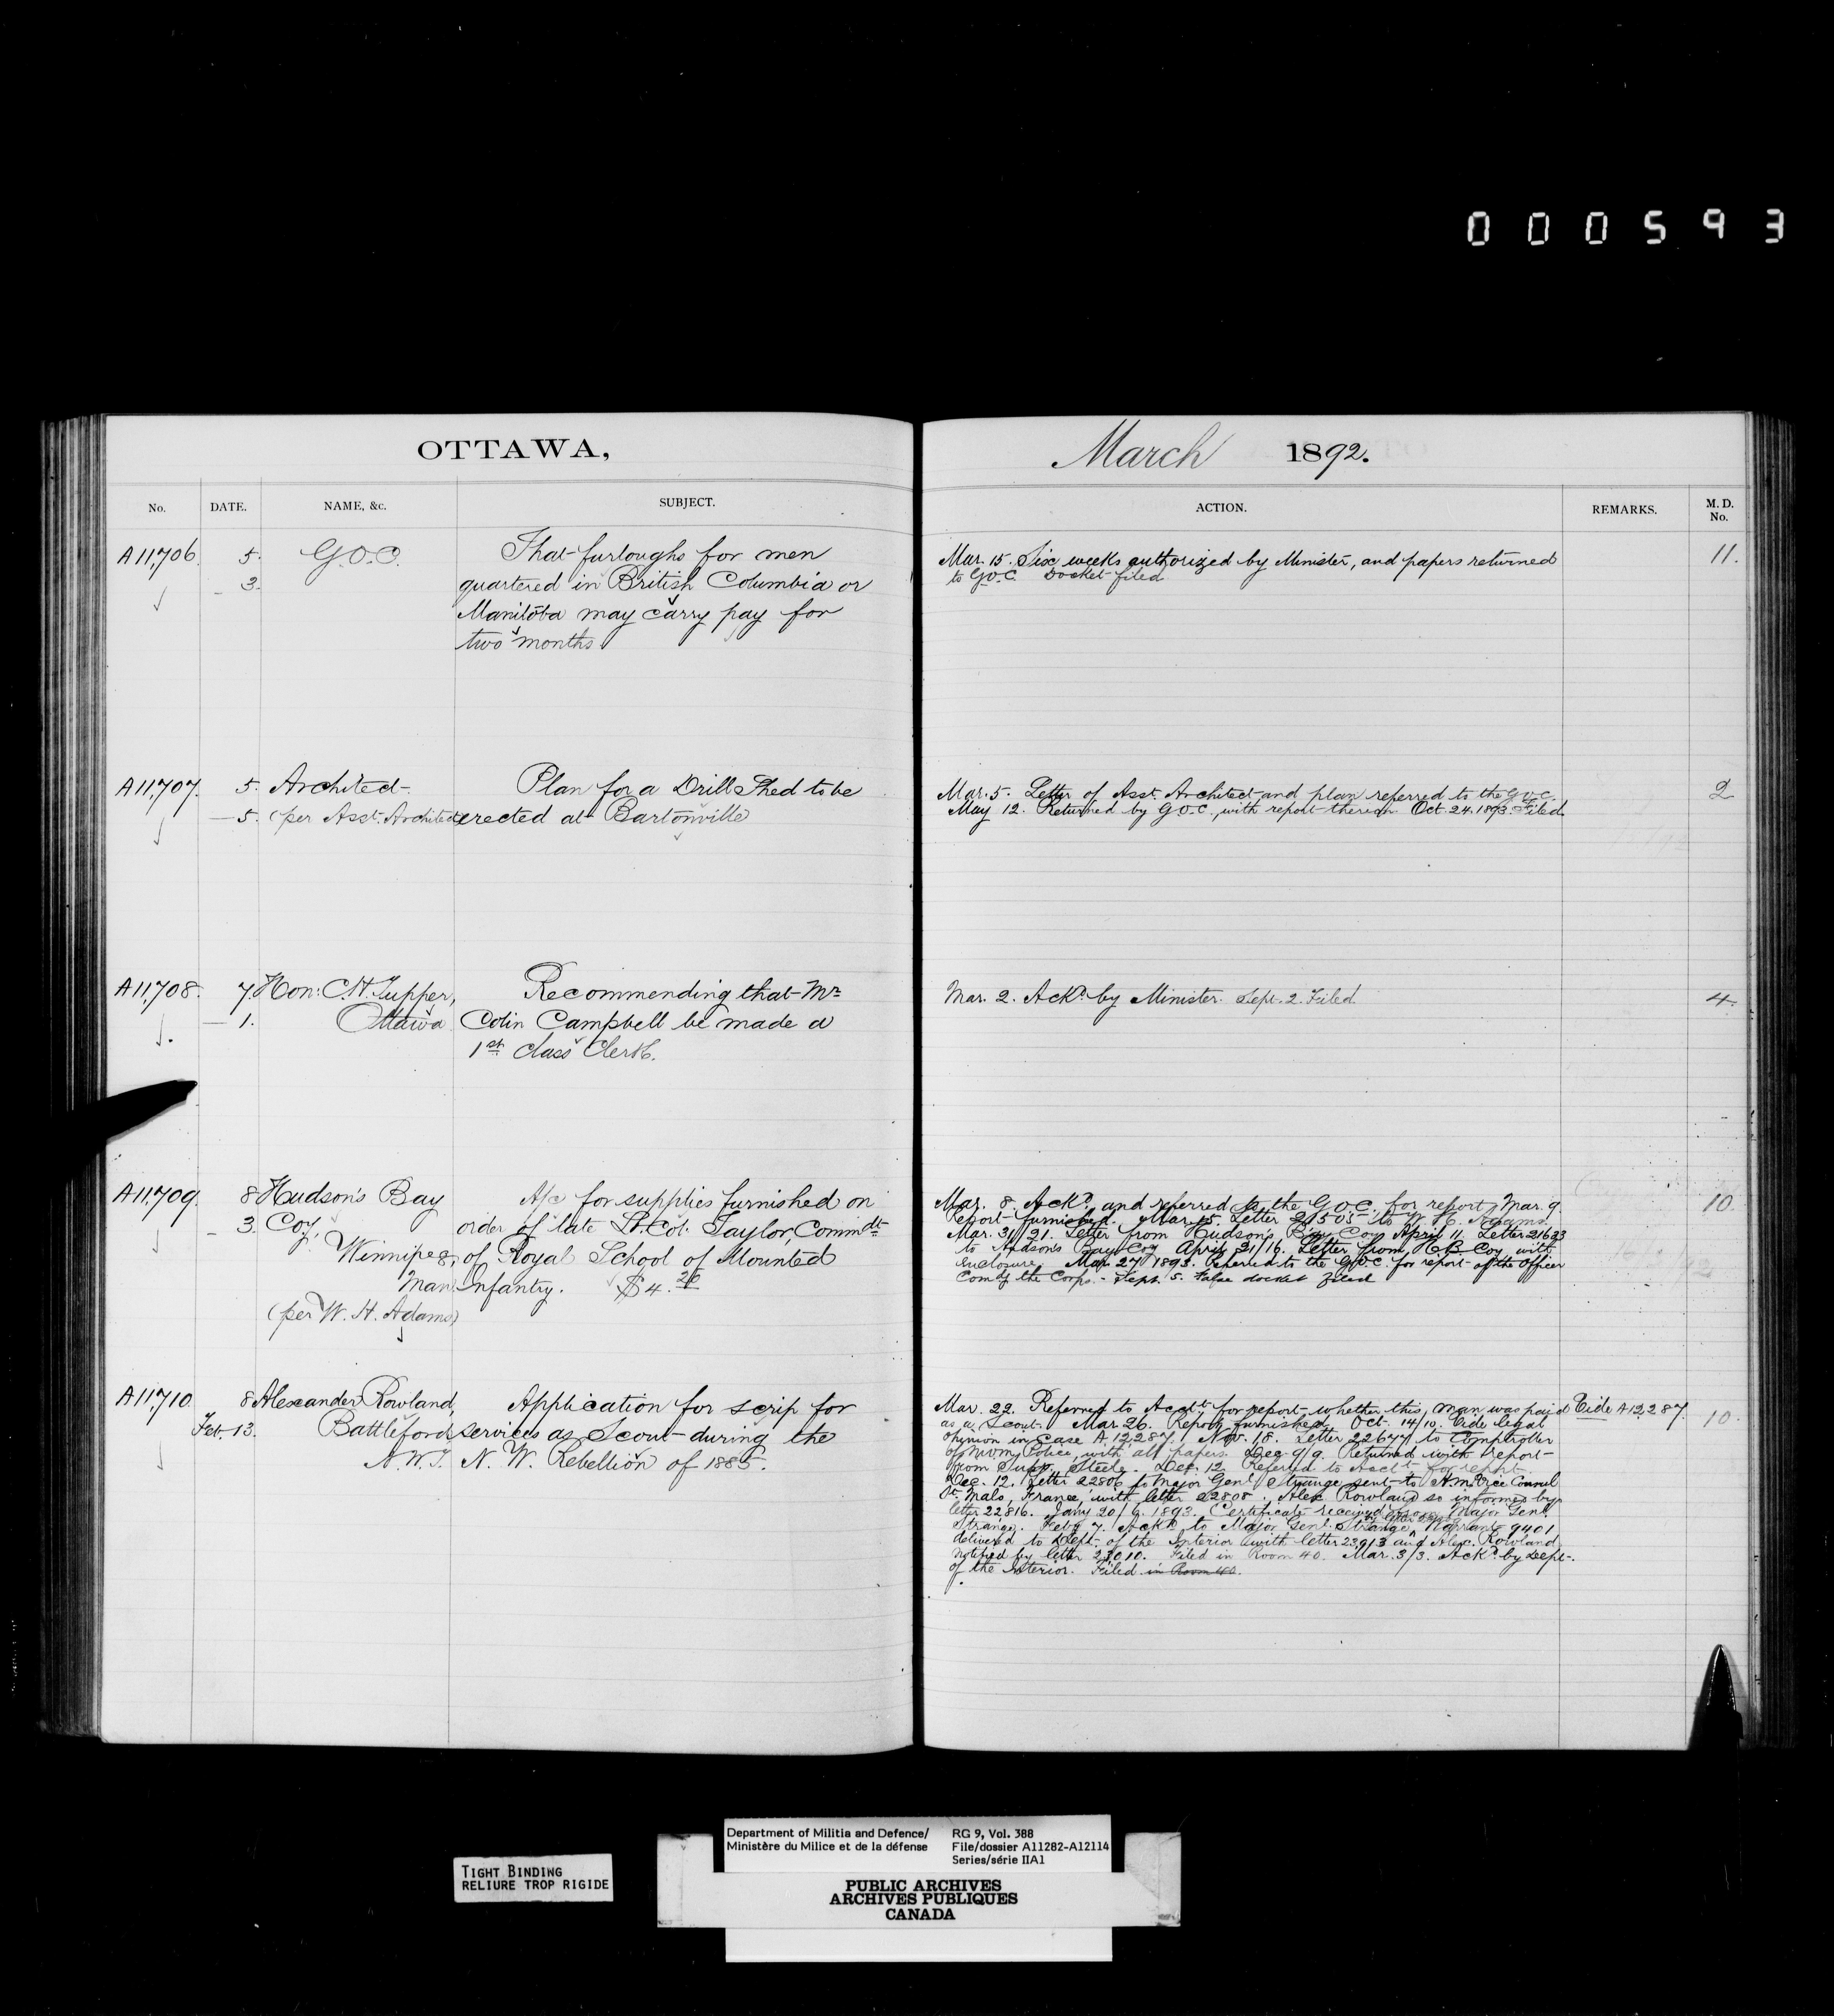 000593
OTTAWA,
No. DATE. NAME, &c. SUBJECT.
A11,706. 5. G.O.C. That furloughs for men
3. quartered in British Columbia or
Manitoba may carry pay for
two months
A11,707. 5. Architect. Plan for a Drill Shed to be
5. (per Asst. Architect) erected at Bartonville
A11,708. 7. Hon: C.H. Tupper, Recommending that Mr
1. Ottawa Colin Campbell be made a
1st class Clerk.
A11,709. 8 Hudson's Bay A/c for supplies furnished on
3. Coy, order of late Lt. Col. Taylor, Commdt
Winnipeg, of Royal School of Mounted
Man. Infantry. $4.20
(per W. H. Adams)
A11,710 8 Alexander Rowland, Application for scrip for
Feb. 13. Battleford, services as Scout during the
N.W.T. N. W. Rebellion of 1885.
March 1892.
ACTION. REMARKS. M.D. No.
Mar. 15. Six weeks authorized by Minister, and papers returned 11.
to G.O.C. Docket filed
Mar. 5. Letter of Asst. Architect and plan referred to the G.O.C. 2
May 12. Returned by G.O.C., with report thereon Oct. 24. 1893. Filed.
Mar. 2. Ackd. by Minister. Sept. 2. Filed 4.
Mar. 8. Ackd. and referred to the G.O.C. for report Mar. 9. 10.
Report furnished. Mar. 15. Letter 21505 to W. H. Adams.
Mar. 31/21. Letter from Hudson's Bay Coy April 11. Letter 21633
to Hudson's Bay Coy April 21/16. Letter from H.B. Coy with
enclosure. Mar 27 1893. Referred to the G.O.C. for report of the Officer
Comdg the Corps. - Sept. 5. False docket filed
Mar. 22. Referred to Acctt for report whether this man was paid Vide A12,287. 10.
as a Scout. Mar 26. Report furnished. Oct. 14/10. Vide legal
opinion in case A.12287. Nov. 18. Letter 22677 to Comptroller
of N.W.M. Police, with all papers. Dec 9/9. Returned with report
from Supt. Steele. Dec. 12. Referred to Acctt for report
Dec. 12. Letter 22806 to Major Genl Strange sent to H.M. Vice Consul
St. Malo, France, with letter 22808. Alex Rowland so informed by
letter 22816. Jany 20/9. 1893. Certificate received Major Genl
Strange. Feby 7. Ackd. to Major Genl. Strange, Warrant 9401
delivered to Dept. of the Interior with letter 23013 and Alex. Rowland
notified by letter 23010. Filed in Room 40. Mar. 3/3. Ackd. by Dept.
of the Interior. Filed in Room 40.
TIGHT BINDING
RELIURE TROP RIGIDE
Department of Militia and Defence/ RG 9, Vol. 388
Ministère du Milice et de la défense File/dossier A11282-A12114
Series/série IIA1
PUBLIC ARCHIVES
ARCHIVES PUBLIQUES
CANADA